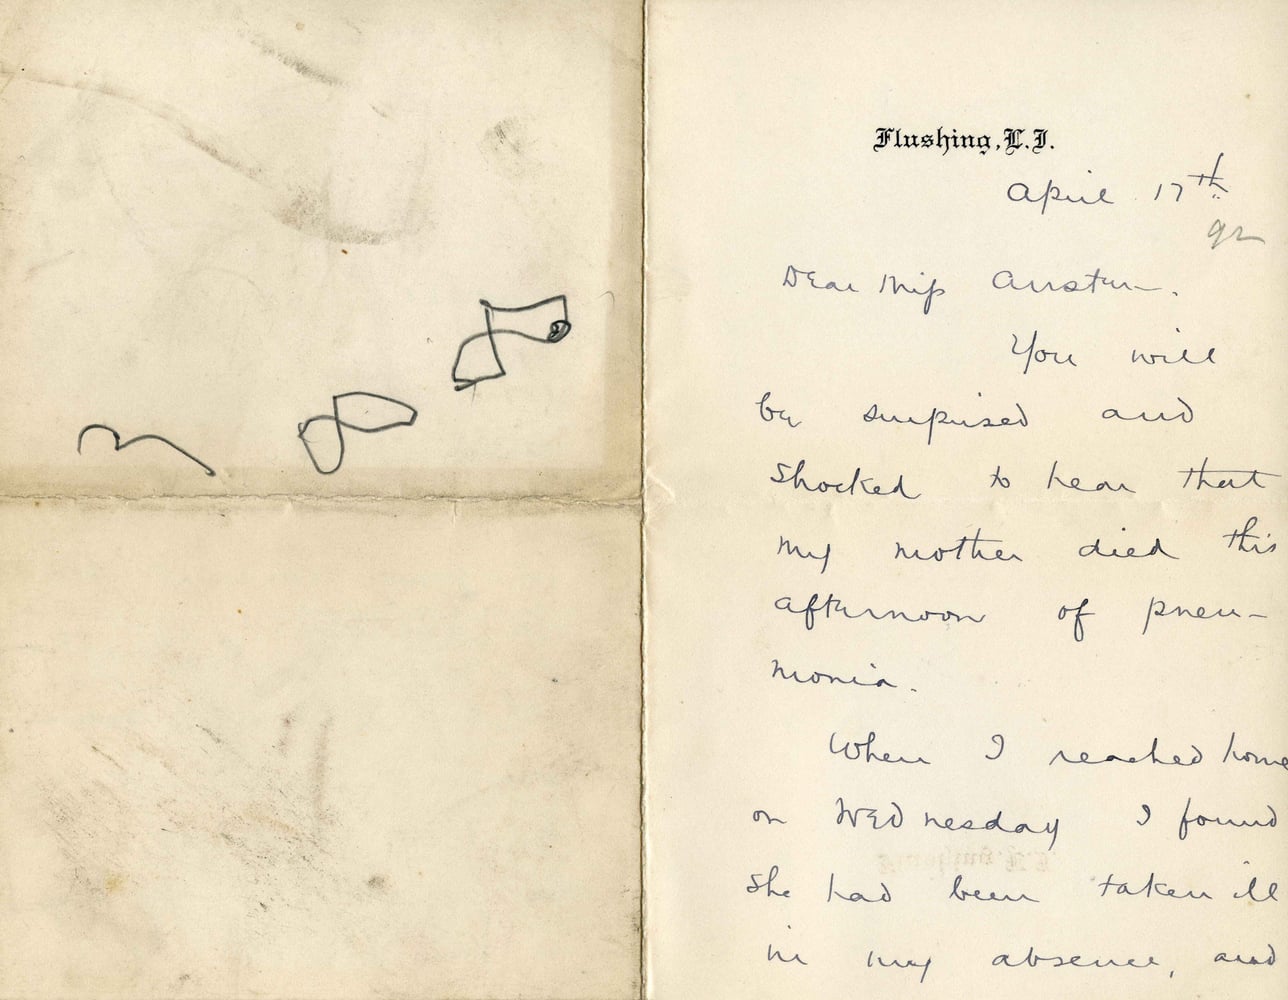 Flushing, L.I.
April 17th
92
Dear Miss Austen—.
You will
be surprised and
shocked to hear that
my mother died this
afternoon of pneu-
monia.
When I reached home
on Wednesday I found
she had been taken ill
in my absence, and